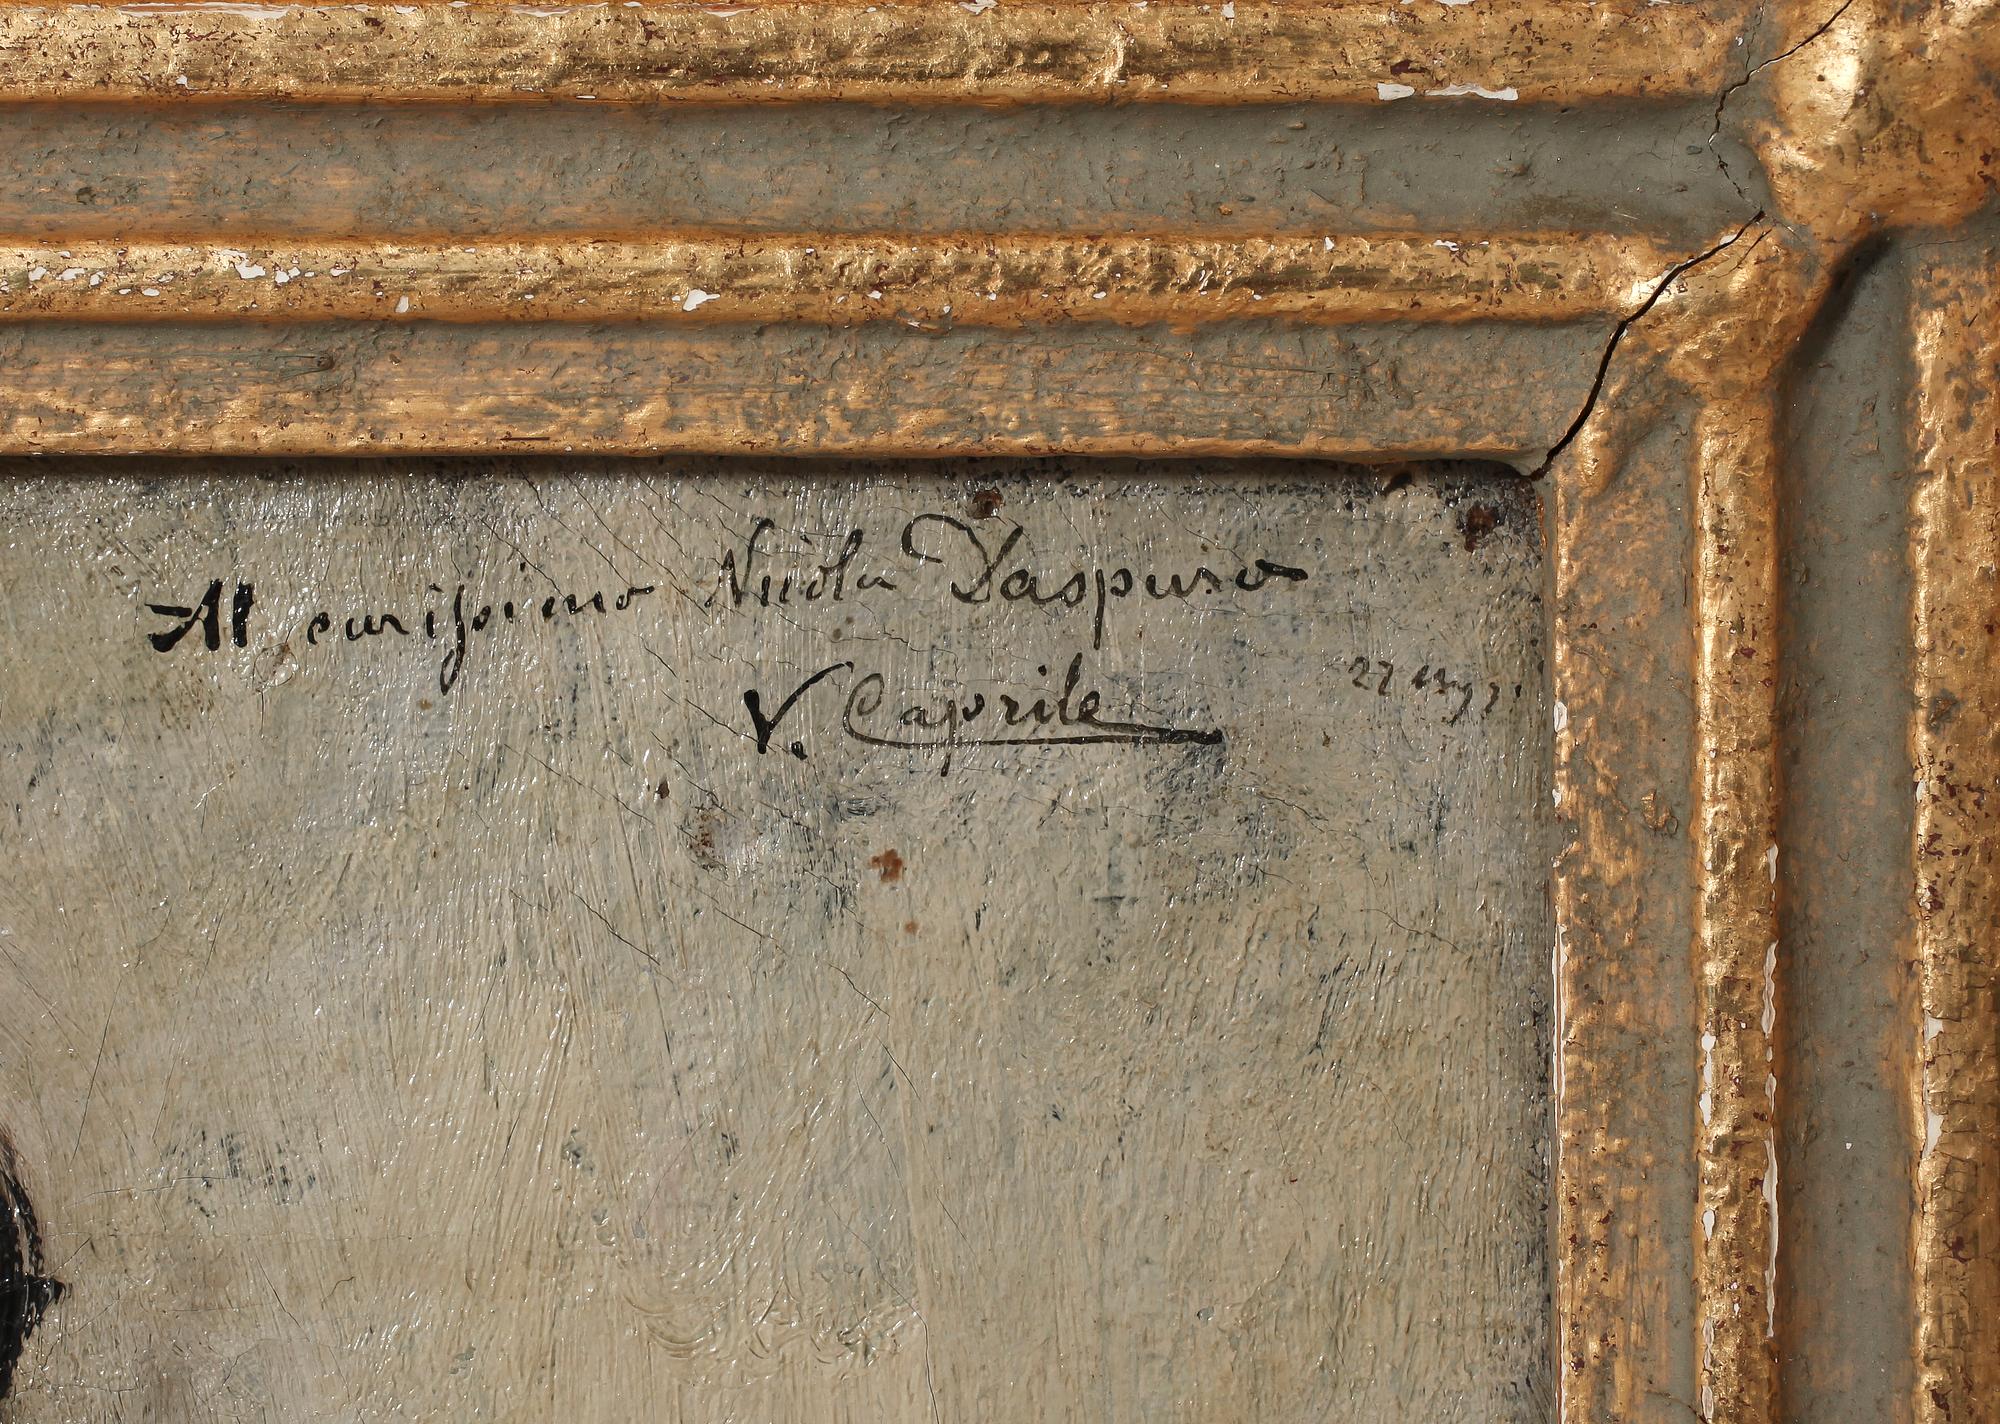 Al carissimo Nicola Daspuro
V. Caprile 27